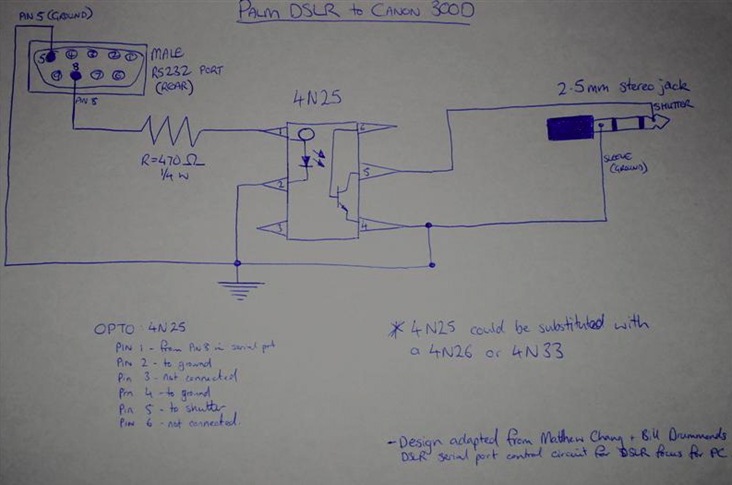 PALM DSLR to CANON 300D
PIN 5 (GROUND)
MALE
RS232 PORT
(REAR)
5 4 3 2 1
9 8 7 6
PIN 8
4N25
R=470Ω
1/4 W
1
2
3
6
5
4
2.5mm stereo jack
SHUTTER
SLEEVE
(GROUND)
OPTO: 4N25
PIN 1 - from PIN 8 in serial port
PIN 2 - to ground
Pin 3 - not connected
Pin 4 - to ground
Pin 5 - to shutter
PIN 6 - not connected.
* 4N25 could be substituted with
a 4N26 or 4N33
- Design adapted from Matthew Chang + Bill Drummonds
DSLR serial port control circuit for DSLR focus for PC